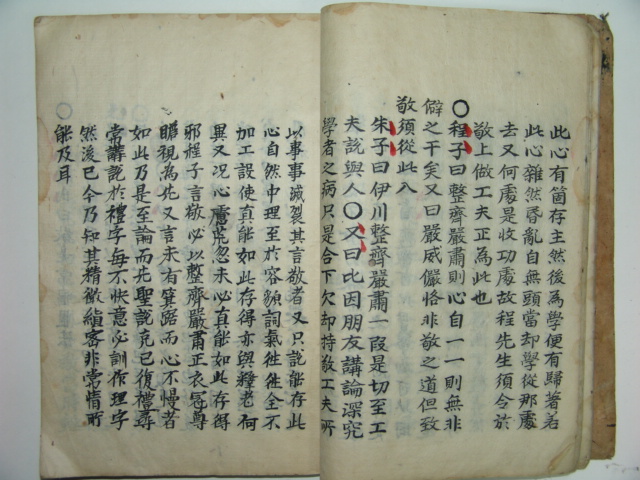 此心有箇存主然後為學便有歸著若
此心雜然昏亂自無頭當却學從那處
去又何處是收功處故程先生須令於
敬上做工夫正為此也
〇程子曰整齊嚴肅則心自一一則無非
僻之干矣又曰嚴威儼恪非敬之道但致
敬須從此入
朱子曰伊川整齊嚴肅一段是切至工
夫說與人〇又曰比因朋友講論深究
學者之病只是合下欠却持敬工夫所
以事事滅裂其言敬者又只說能存此
心自然中理至於容貌詞氣徃徃全不
加工設使真能如此存得亦與釋老何
異又况心慮荒忽未必真能如此存得
邪程子言敬必以整齊嚴肅正衣冠尊
瞻視為先又言未有箕踞而心不慢者
如此乃是至論而先聖說克己復禮尋
常講說於禮字每不快意必訓作理字
然後已今乃知其精微縝密非常情所
〇能及耳